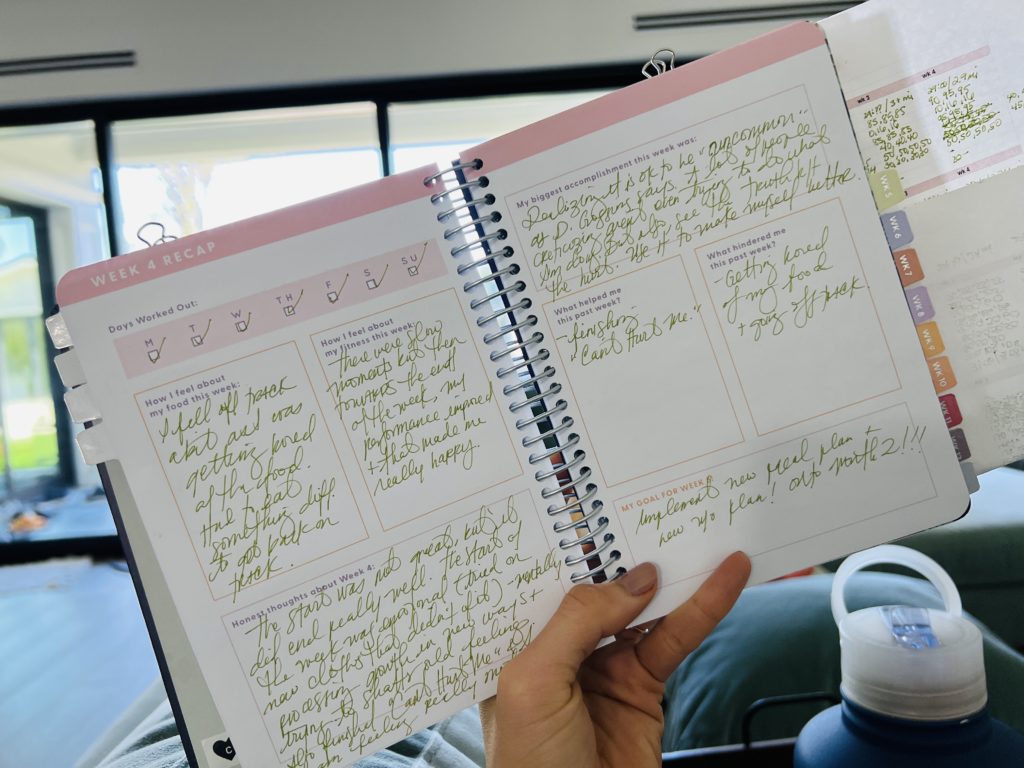 WEEK 4 RECAP
Days Worked Out:
M T W TH F S SU
How I feel about
my food this week:
I fell off track
abit and was
getting bored
of the food.
Had to eat
something diff.
to get back on
track.
How I feel about
my fitness this week:
There were slow
moments but then
towards the end
of the week, my
performance improved
+ that made me
really happy.
Honest thoughts about Week 4:
The start was not great, but it
did end really well. The start of
the week was abnormal (tried on
new clothes that didn't fit) - mentally
processing growth in new ways +
trying to shatter old feelings.
Also finished "Can't Hurt Me"
am feeling really
My biggest accomplishment this week was:
Realizing it is ok to be "uncommon"
as D. Goggins says. A lot of people
are
I'm doing but also, see the truth of
the hurt. Use it to make myself better
What helped me
this past week?
- finishing
"Can't Hurt Me."
What hindered me
this past week?
- Getting bored
of my food
+ going off track
MY GOAL FOR WEEK
Implement new meal plan +
new w/o plan! Onto month 2!!!
wk 3
wk 4
WK 5
WK 6
WK 7
WK 8
WK 9
WK 10
WK 11
C